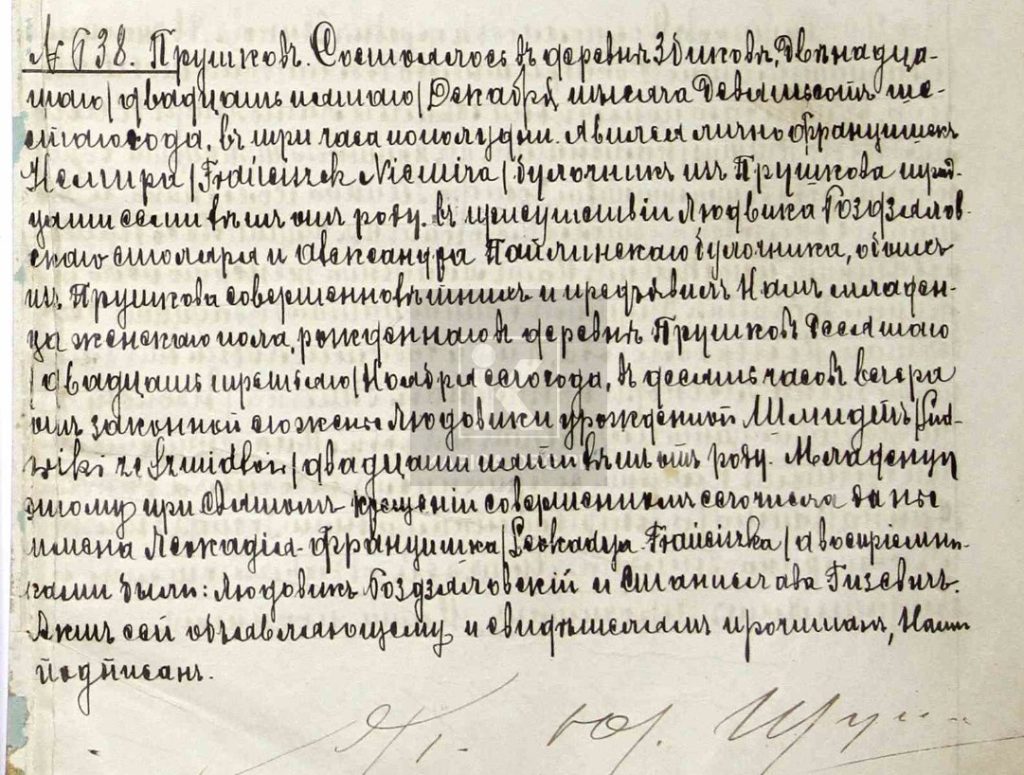 № 638. Прушковъ. Состоялось въ деревнѣ Збиковѣ, двѣнадца-
таго /двадцать пятаго/ Декабря мѣсяца Девятьсотъ ше-
стаго года, въ три часа пополудни. Явился лично Францишекъ
Немира /Franciszek Niemira/ булочникъ изъ Прушкова трид-
цати семи лѣтъ отъ роду. въ присутствіи Людвика Гоздзялов-
скаго столяра и Александра Пайлинскаго булочника, обоихъ
изъ Прушкова совершеннолѣтнихъ и предъявилъ Намъ младен-
ца женскаго пола, рожденнаго въ деревнѣ Прушковѣ десятаго
/двадцать третьяго/ Ноября сего года, въ десять часовъ вечера
отъ законной его жены Людовики урожденной Шмидтъ /Lud-
wiki ze Szmidtów/ двадцати пяти лѣтъ отъ роду. Младенцу
этому при Святомъ крещеніи совершенномъ сего числа даны
имена Леокадія-Францишка /Leokadya Franciszka/ а воспріемни-
ками были: Людовикъ Гоздзяловскій и Станислава Гизевичъ.
Актъ сей объявляющему и свидѣтелямъ прочитанъ, Нами
подписанъ.